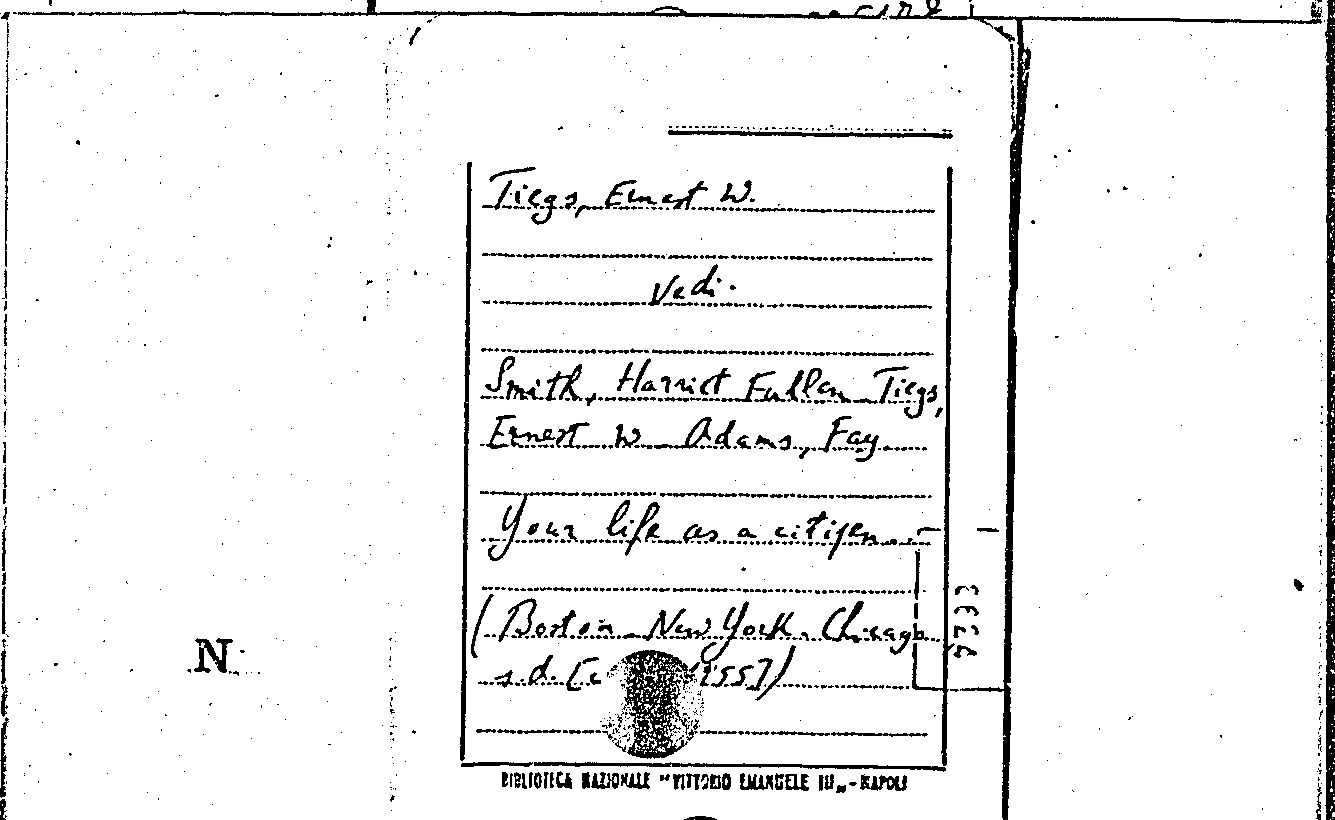 Tiegs, Ernest W.
Vedi.
Smith, Harriet Fullen - Tiegs,
Ernest W - Adams, Fay.
Your life as a citizen...
(Boston - New York - Chicago
s.d. [c 1955])
N
BIBLIOTECA NAZIONALE "VITTORIO EMANUELE III„ - NAPOLI